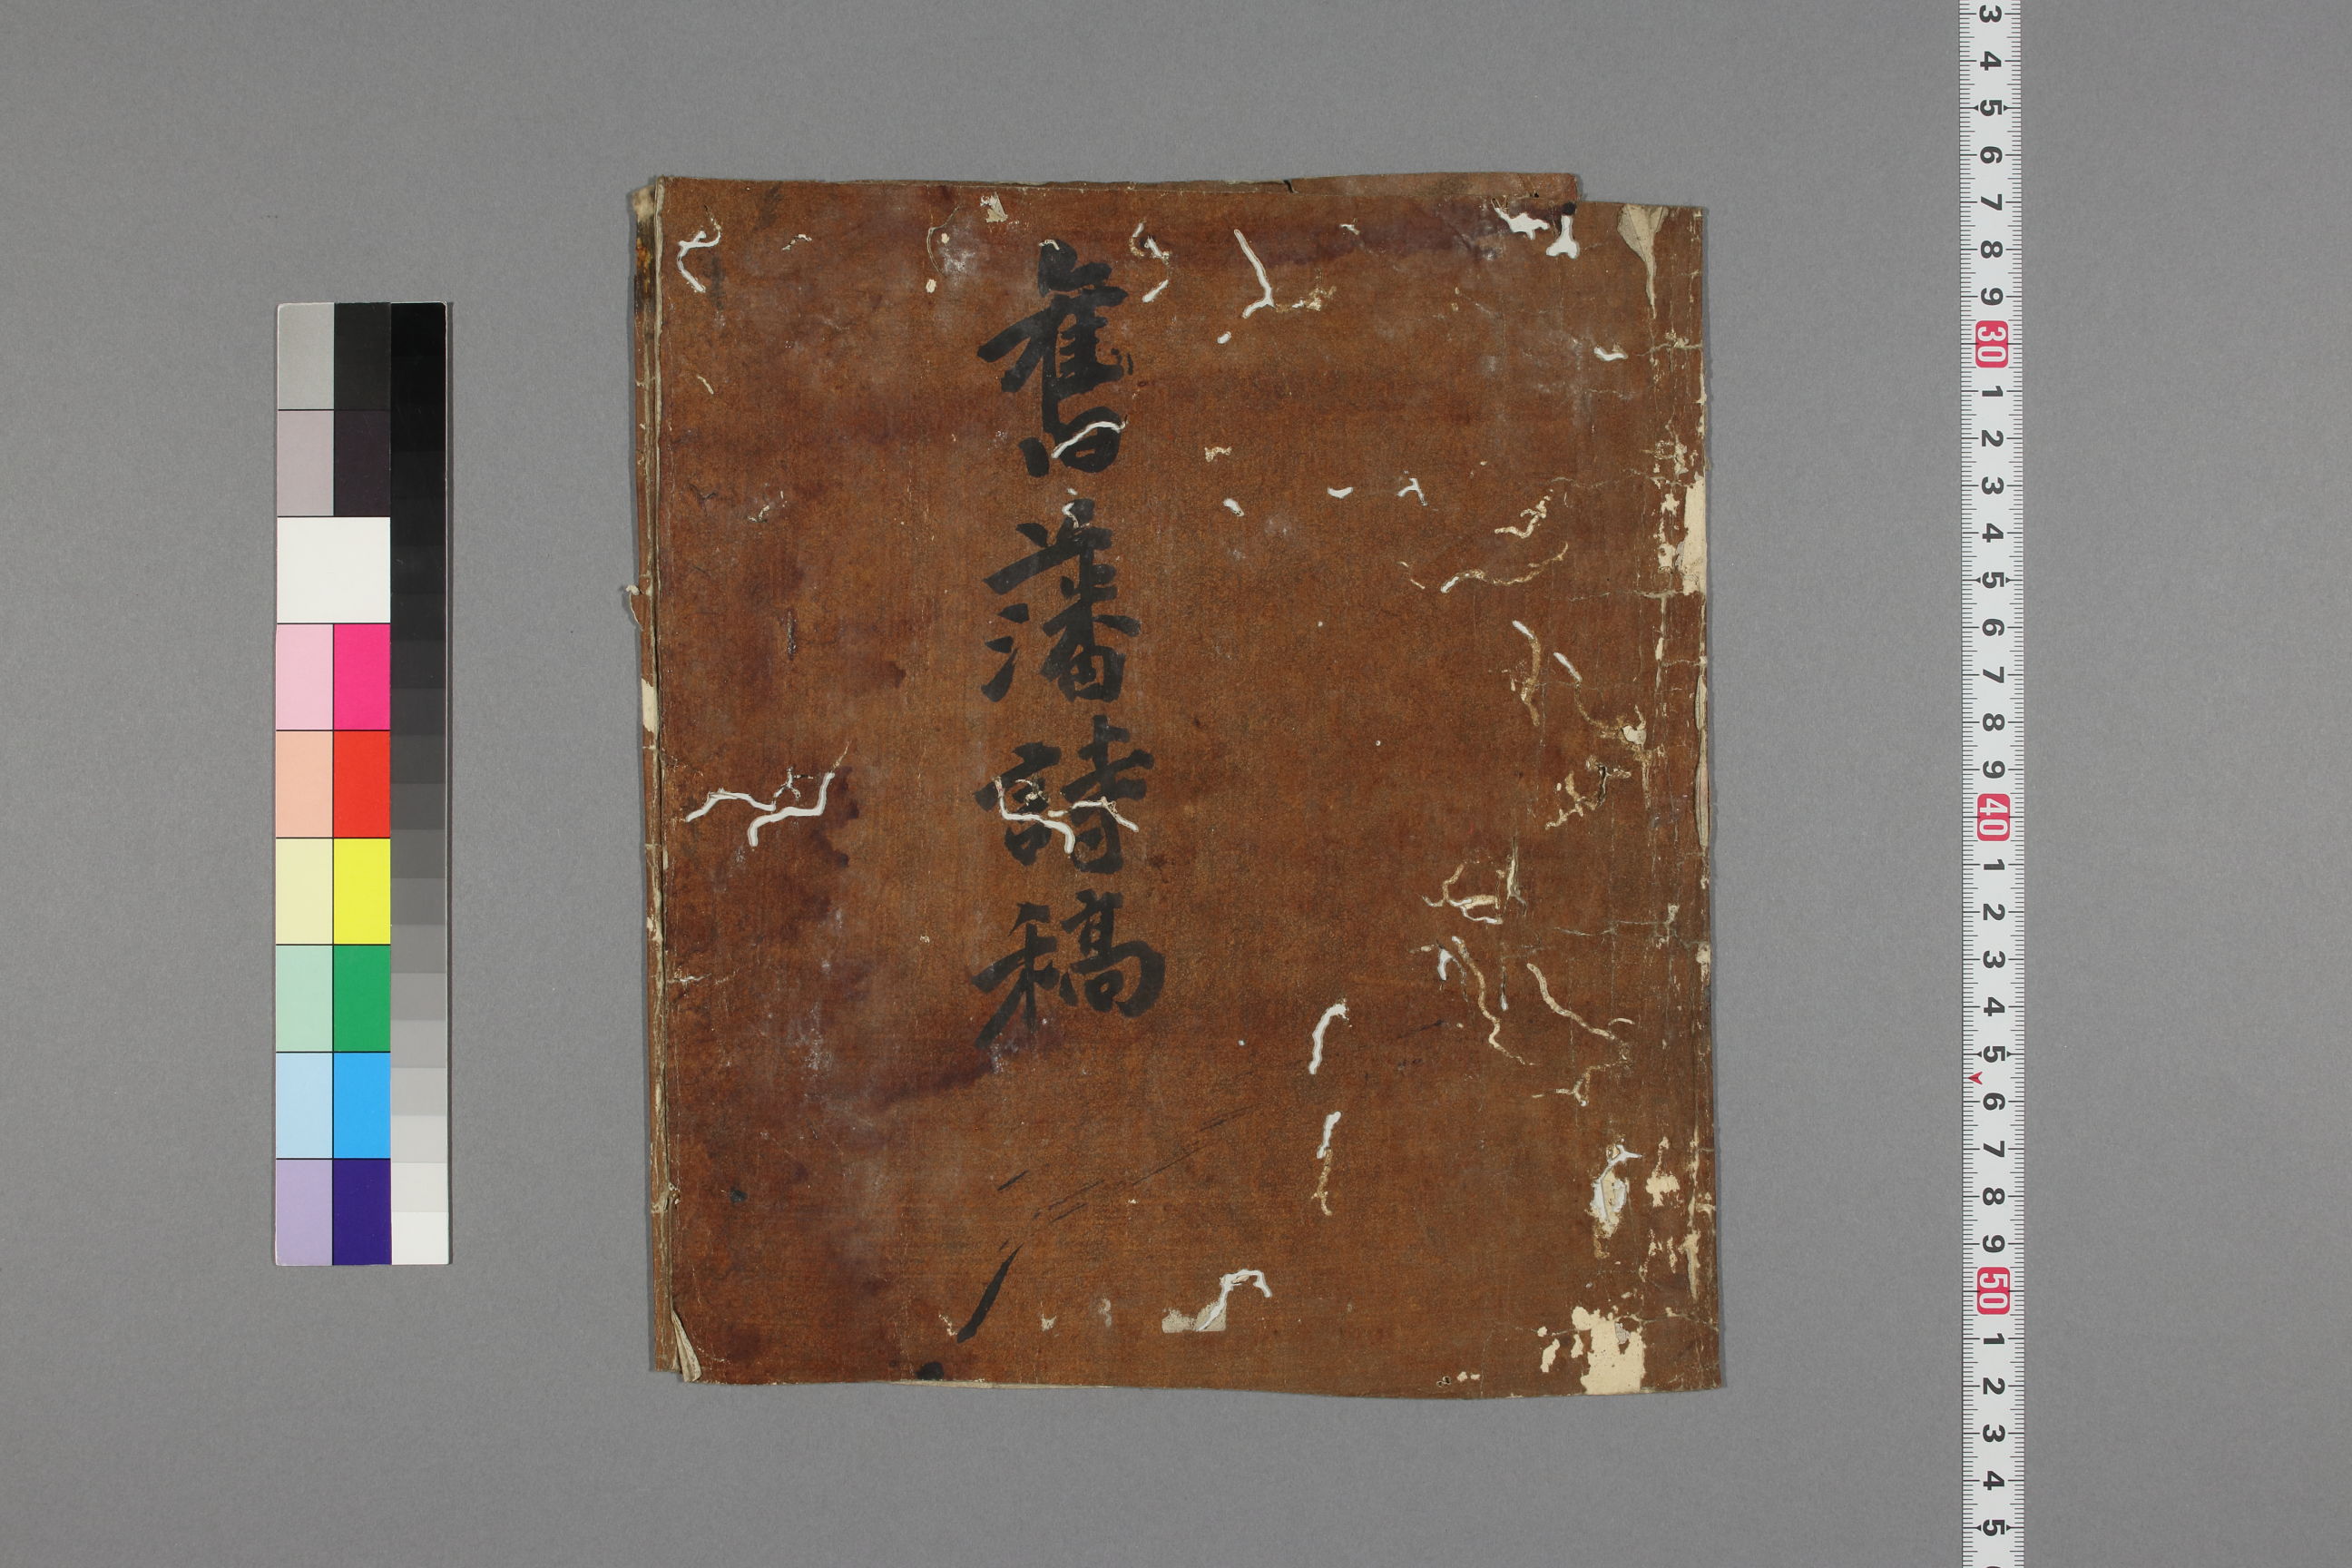 舊藩詩稿
3
4
5
6
7
8
9
30
1
2
3
4
5
6
7
8
9
40
1
2
3
4
5
6
7
8
9
50
1
2
3
4
5